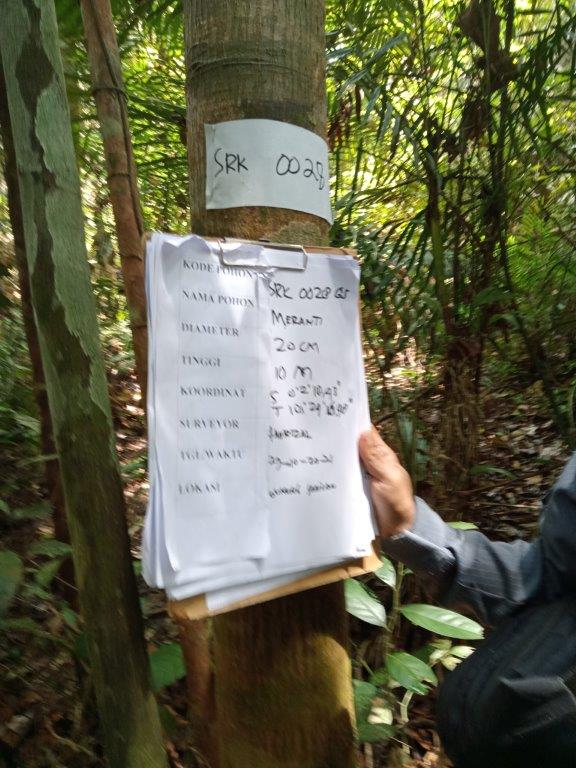 SRK 0028
KODE POHON SRK 0028
NAMA POHON MERANTI
DIAMETER 20 CM
TINGGI 10 M
KOORDINAT S 0°2'10,43"
T 101°29'
SURVEYOR
TGL/WAKTU
LOKASI